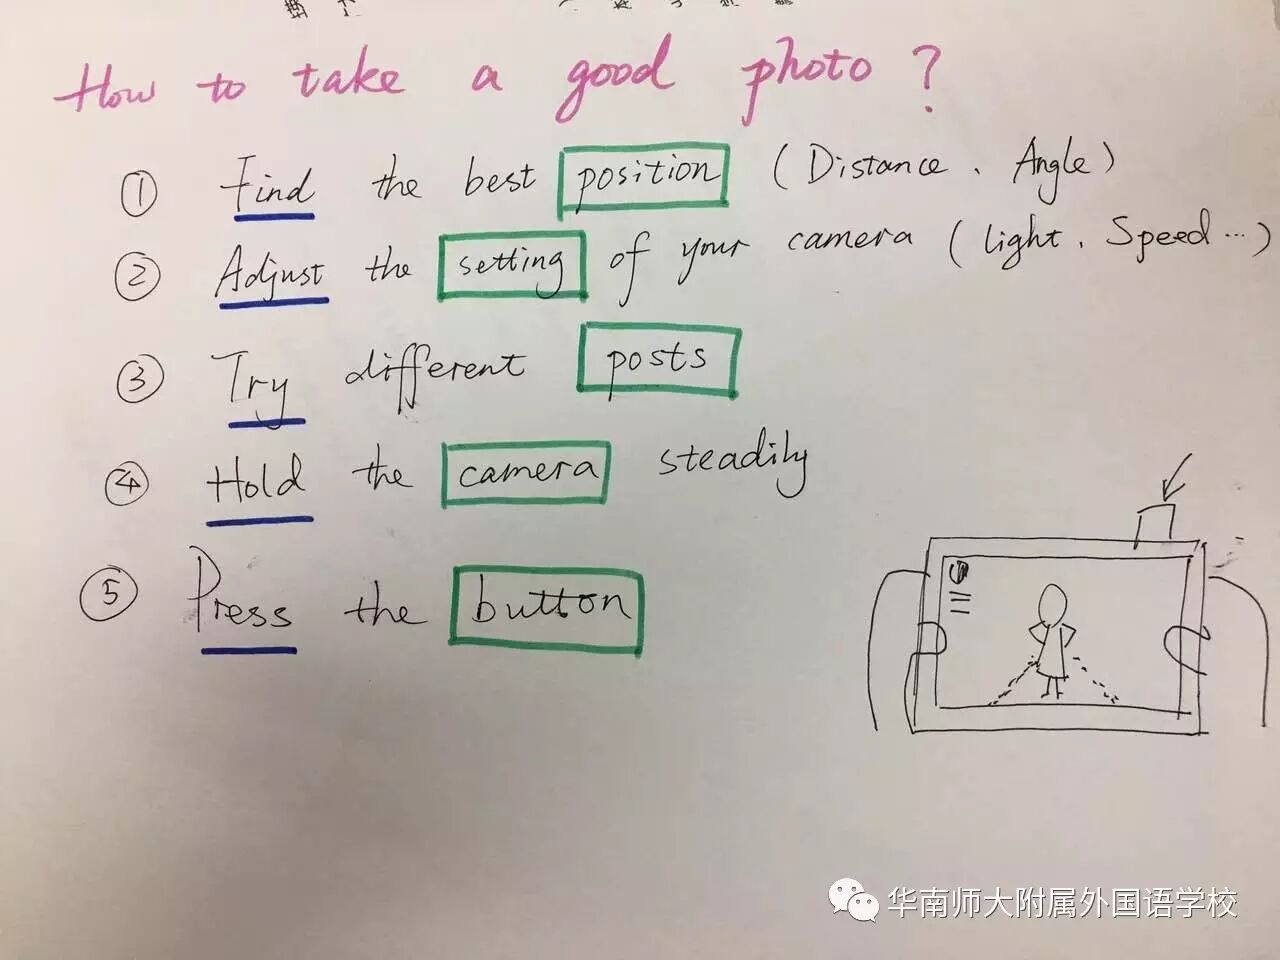 How to take a good photo?
① Find the best position (Distance、Angle)
② Adjust the setting of your camera (light、Speed…)
③ Try different posts
④ Hold the camera steadily
⑤ Press the button
华南师大附属外国语学校